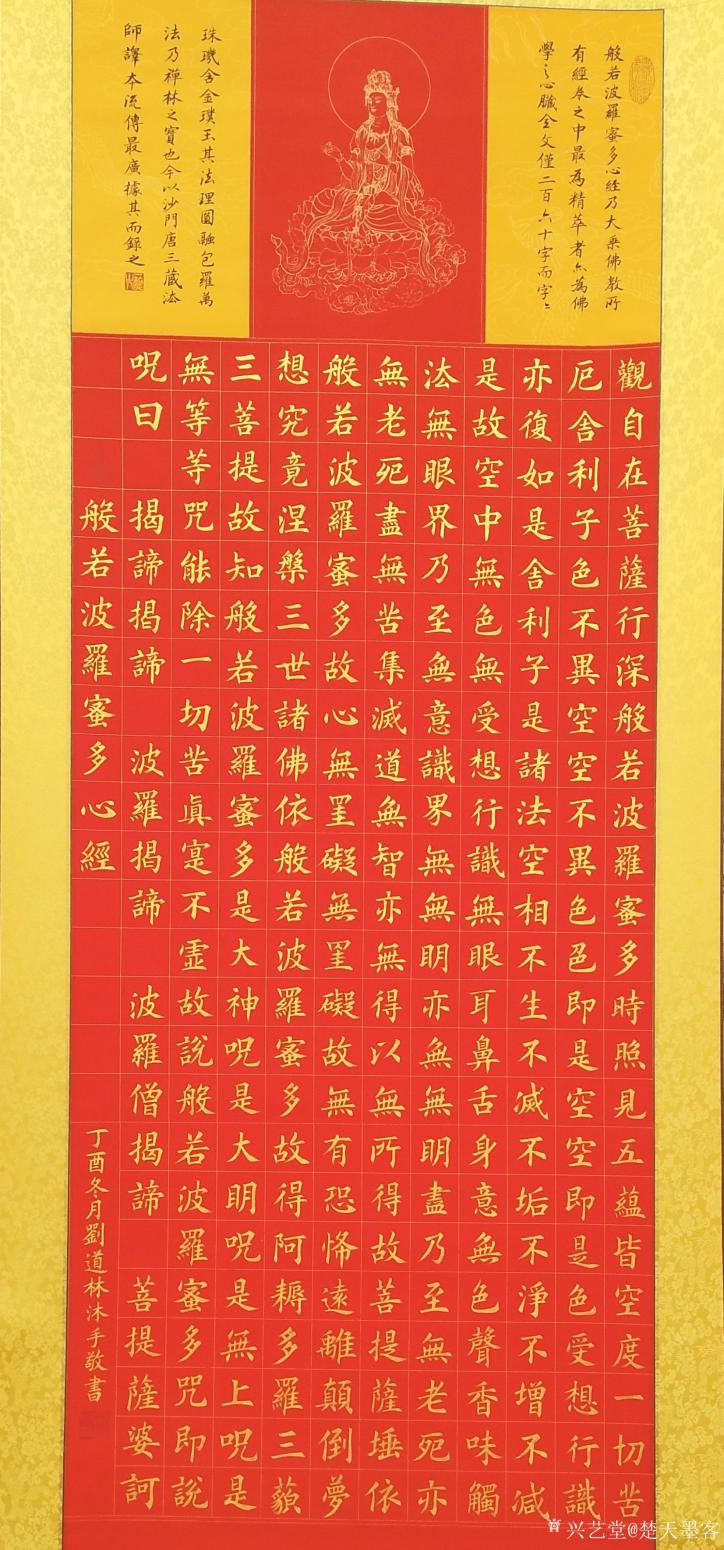 般若波羅蜜多心經乃大乘佛教所
有經卷之中最為精萃者亦為佛
學之心臟全文僅二百六十字而字〻
珠璣含金璞玉其法理圓融包羅萬
法乃禪林之寶也今以沙門唐三藏法
師譯本流傳最廣據其而錄之
觀自在菩薩行深般若波羅蜜多時照見五蘊皆空度一切苦
厄舍利子色不異空空不異色色即是空空即是色受想行識
亦復如是舍利子是諸法空相不生不滅不垢不淨不增不減
是故空中無色無受想行識無眼耳鼻舌身意無色聲香味觸
法無眼界乃至無意識界無無明亦無無明盡乃至無老死亦
無老死盡無苦集滅道無智亦無得以無所得故菩提薩埵依
般若波羅蜜多故心無罣礙無罣礙故無有恐怖遠離顛倒夢
想究竟涅槃三世諸佛依般若波羅蜜多故得阿耨多羅三藐
三菩提故知般若波羅蜜多是大神呪是大明呪是無上呪是
無等等咒能除一切苦真寔不虛故說般若波羅蜜多咒即說
呪曰 揭諦揭諦 波羅揭諦 波羅僧揭諦 菩提薩婆訶
般若波羅蜜多心經
丁酉冬月劉道林沐手敬書
兴艺堂@楚天墨客